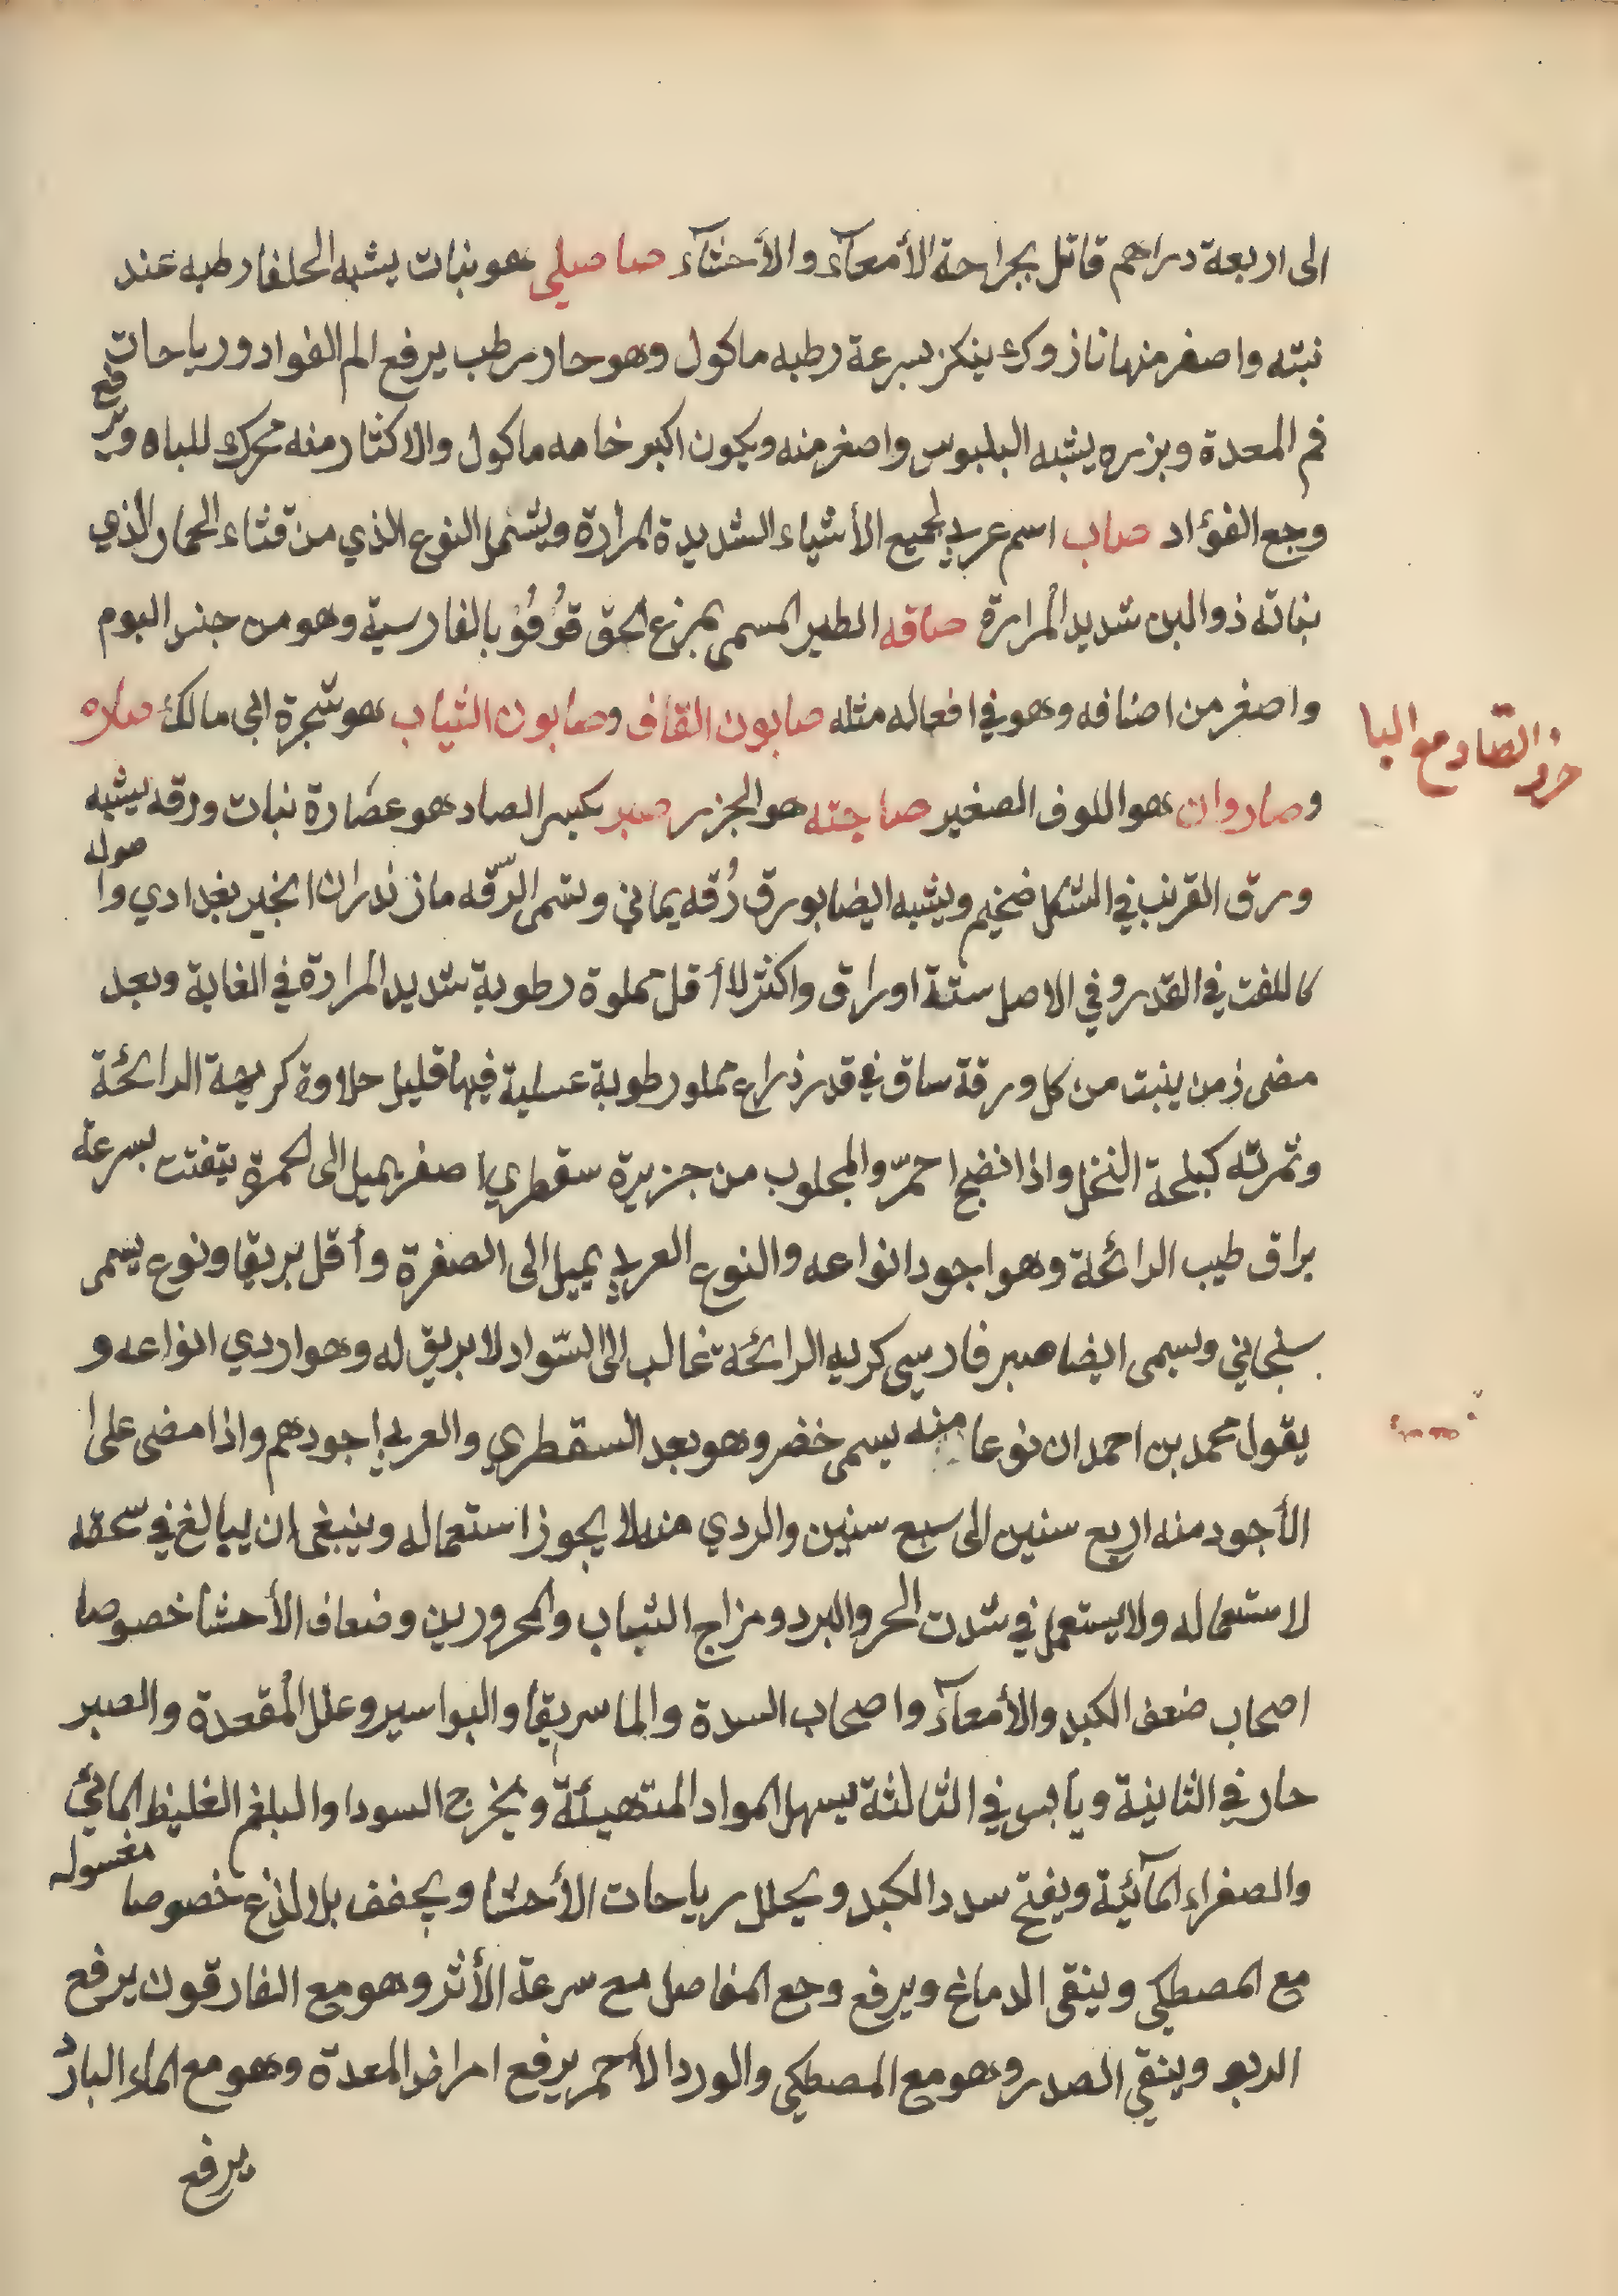 الى اربعة دراهم قاتل بجراحة الأمعآء والأحشآء صاصلي هو نبات يشبه الحلفا رطبه عند
نبته واصفر منها نازوك ينكز بسرعة رطبه ماكول وهو حار رطب يرفع الم الفواد ورياحات
فم المعدة وبزره يشبه البلبوس واصغر منه ويكون اكبر خامه ماكول والاكثار منه محرك للباه ويرفع
وجع الفؤاد صاب اسم عربي لجميع الأشياء الشديدة المرارة ويشمل النوع الذي من قثاء الحمار الذي
نباته ذو البن شديد المرارة صاقه الطير المسمى بمزع الحق قوُفوُ بالفارسية وهو من جنس البوم
واصغر من اضافه وهو في افعاله مثله صابون القاف وصابون الثياب هو شجرة ابى مالك صلاه
وصاروان هو اللوف الصغير صاجته هو الجزر صبر بكسر الصاد هو عصَارة نبات ورقه يشبه
ورق القرنب في الشكل ضخيم ويشبه ايضا بورق دُقه يماني وتسمى الدّقه مازندران انجير بغدادي واصوله
كاللفت في القدر وفي الاصل ستة اوراق واكثر لا أقل مملوة رطوبة شديد المرارة في الغاية وبعد
مضى زمن ينبت من كل ورقة ساق في قدر ذراع مملو رطوبة عسلية فيها قليل حلاوة كريهة الرائحَة
وثمرته كبلحة النخل واذا نضج احمرّ والمجلوب من جزيرة سقطري اصفر يميل الى الحمرة يتفتت بسرعة
براق طيب الرائحة وهو اجود انواعه والنوع العربي يميل الى الصفرة وأقل بريقا ونوع يسمى
سنجاني ويسمى ايضا صبر فارسي كريه الرائحَة غالب الى السّواد لا بريق له وهو اردي انواعه و
يقول محمد بن احمد ان نوعا منه يسمى خضر وهو بعد السقطري والعربي اجودهم واذا مضى على ا
الأجود منه اربع سنين الى سبع سنين والردي منه لا يجوز استعماله وينبغى ان يبالغ في سحقه
لاستعماله ولا يستعمل في شدت الحر والبرد ومزاج الشباب والمحرورين وضعاف الأحشا خصوصا
اصحاب ضعف الكبد والأمعآء واصحاب السدة والماسريقا والبواسير وعلل المُقعدة والصبر
حار في الثانية ويابس في الثالثة يسهل المواد المتهيئة ويخرج السودا والبلغم الغليظ المائي
والصفراء المآئية ويفتح سدد الكبد ويحلل رياحات الأحشا ويجفف بلا لذع خصوصا مغسوله
مع المصطكى وينقى الدماغ ويرفع وجع المفاصل مع سرعة الأثر وهو مع الفارقون يرفع
الربو وينقي الصدر وهو مع المصطكى والورد الأحمر يرفع امراض المعدة وهو مع الماء البارد
يرفع
حرف الصّاد مع البا